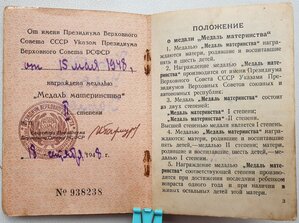 От имени Президиума Верховного
Совета СССР Указом Президиума
Верховного Совета РСФСР
от 15 мая 1948 г.
награждена медалью
„Медаль материнства“
II степени
Секретарь Президиума
194 г.
№ 938238
ПОЛОЖЕНИЕ
о медали „Медаль материнства“
1. Медалью „Медаль материнства“ награждаются
матери, родившие и воспитавшие пять и
шесть детей.
2. Награждение медалью „Медаль материнства“
производится от имени Президиума
Верховного Совета СССР Указами
Президиумов Верховных Советов союзных и
автономных республик.
3. „Медаль материнства“ состоит из
двух степеней:
„Медаль материнства“ I степени,
„Медаль материнства“ II степени.
Высшей степенью медали является I степень.
4. Награждаются медалью материнства:
матери, родившие и воспитавшие
пять детей, — медалью II степени;
матери, родившие и воспитавшие шесть детей, — медалью
I степени.
5. Награждение медалью „Медаль материнства“
производится по достижении
последним ребенком
возраста одного года и при наличии в
живых остальных детей этой матери.
3